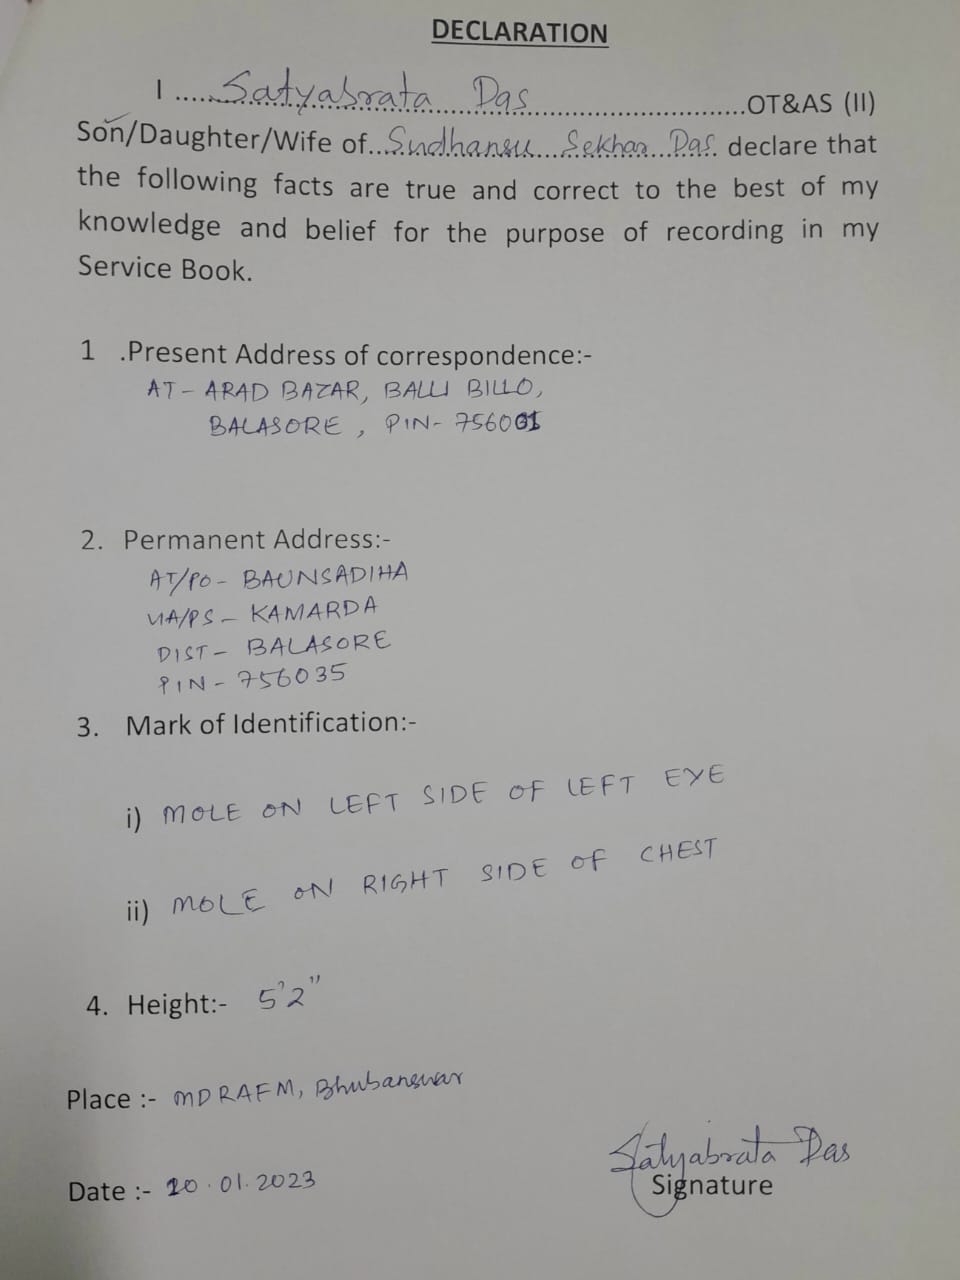 DECLARATION
I ..... Satyabrata Das ..........OT&AS (II)
Son/Daughter/Wife of...Sudhansu....Sekhar...Das. declare that
the following facts are true and correct to the best of my
knowledge and belief for the purpose of recording in my
Service Book.
1 .Present Address of correspondence:-
AT- ARAD BAZAR, BALLI BILLO,
BALASORE, PIN- 756001
2. Permanent Address:-
AT/PO- BAUNSADIHA
VIA/PS- KAMARDA
DIST- BALASORE
PIN- 756035
3. Mark of Identification:-
i) MOLE ON LEFT SIDE OF LEFT EYE
ii) MOLE ON RIGHT SIDE OF CHEST
4. Height:- 5'2"
Place :- MDRAFM, Bhubaneswar
Date :- 20.01.2023
Satyabrata Das
Signature